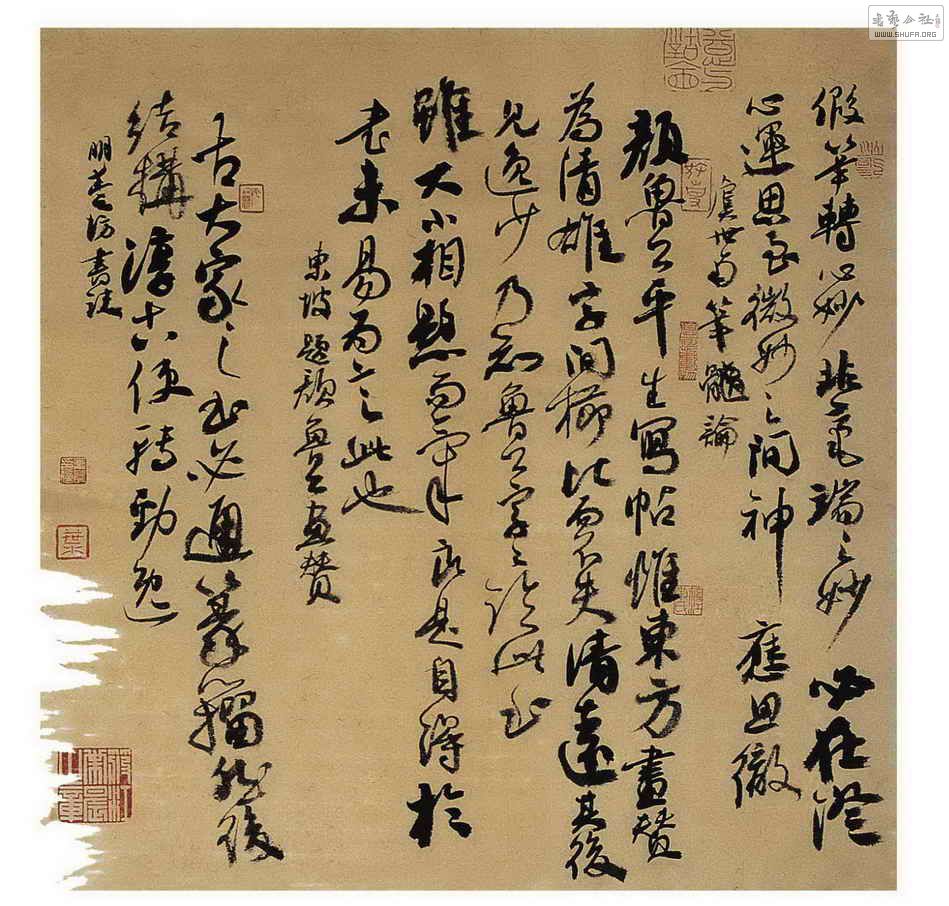 書藝公社
WWW.SHUFA.ORG
假筆轉心妙非毫端之妙必在澄
心運思至微妙之間神應思徹
虞世南筆髓論
顏魯公平生寫帖惟東方畫贊
為清雄字間櫛比而不失清遠其後
見逸少乃知魯公字字臨此書
雖大小相懸而氣良是自得於
書未易為言此也
東坡題顏魯公畫贊
古大家之書必通篆籀然後
結構淳古使轉勁逸
明豐坊書訣